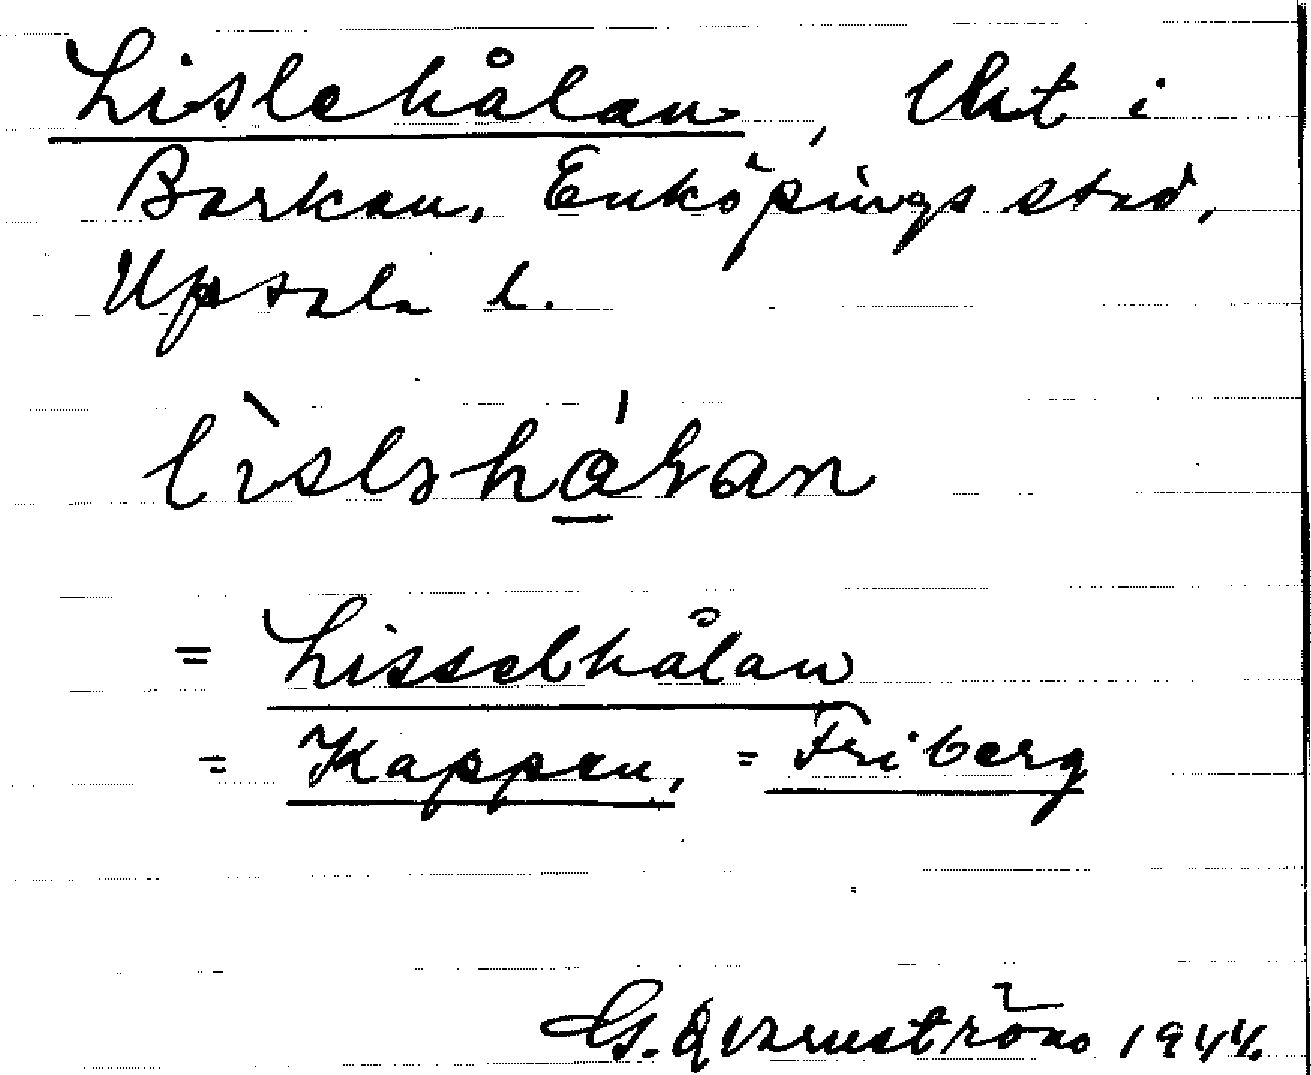 Lislehålan, lht i
Barkan, Enköpings stad,
Upsala l.
lìslshá̱lan
= Lisselhålan
= Kappen, = Friberg
G. Qvarnström 1944.